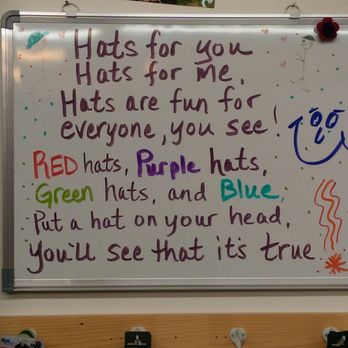 Hats for you
Hats for me.
Hats are fun for
everyone, you see!
RED hats, Purple hats,
Green hats, and Blue,
Put a hat on your head,
You'll see that it's true